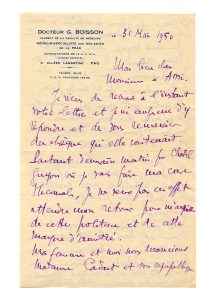 DOCTEUR G. BOISSON
LAURÉAT DE LA FACULTÉ DE MÉDECINE
MÉDECIN-SPÉCIALISTE DES MALADIES
DE LA PEAU
ALLÉES LAMARTINE - PAU
le 31 Mai 1950
Mon bien cher
Monsieur et Ami.
Je viens de recevoir à l'instant
votre lettre et je m'empresse d'y
répondre et de vous remercier
du chèque qu'elle contenait.
Partant demain matin pour Châtel-
Guyon où je vais faire ma cure
thermale, je ne peux pas en effet
attendre mon retour pour
de cette politesse et de cette
marque d'amitié.
Ma femme et moi vous remercions
Madame et son sympathique